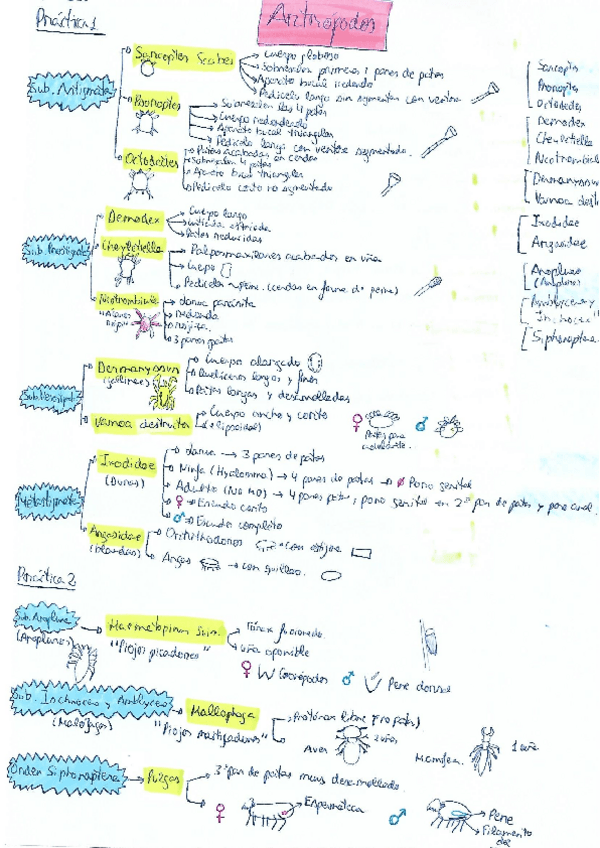 Práctica 1
Artrópodos
Sub. Astigmata
Sarcoptes Scabei
Cuerpo globoso
Sobresalen primeros 2 pares de patas
Aparato bucal redondo
Pedicelo largo sin segmentar con ventosa
Psoroptes
Sobresalen las 4 patas
Cuerpo redondeado
Aparato bucal triangular
Pedicelo largo con ventosa segmentado.
Octodectes
Patas acabadas en cerdas
Sobresalen 4 patas
Aparato bucal triangular
Pedicelo corto no segmentado
Sub. Prostigmata
Demodex
Cuerpo largo
cutícula estriada
Patas reducidas
Cheyletiella
Palpos acabados en uña
Cuerpo
Pedicelo (cerdas en forma de peine)
larva parásita
Redonda
Rojiza
3 pares patas
Dermanyssus
(gallinae)
Cuerpo alargado
Quelíceros largos y finos
Patas largas y desarrolladas
Varroa destructor
Cuerpo ancho y corto
(elipsoidal)
♀
♂
Patas para
Metastigmata
Ixodidae
(Duras)
larva → 3 pares de patas
Ninfa (Hyalomma) → 4 pares de patas → Ø Poro genital
Adulto → 4 pares patas, poro genital en 2º par de patas y poro anal.
♀ → Escudo corto
♂ → Escudo completo
Argasidae
(blandas)
Ornithodoros
con
Argas → con quilla.
Sarcoptes
Psoroptes
Octodectes
Demodex
Cheyletiella
Dermanyssus
Varroa destr
Ixodidae
Argasidae
Anoplura
Siphonaptera
Práctica 2
Sub. Anoplura
(Anopluros)
Haematopinus Suis.
"Piojos picadores"
Tórax fusionado.
Uña oponible
♀ Gonópodos
♂ Pene dorsal
Sub. Ischnocera y Amblycera
(Malófagos)
Mallophaga
"Piojos masticadores"
Protórax libre
Aves
2 uñas
Mamífero.
1 uña
Orden Siphonaptera
Pulgas
3er par de patas muy desarrollado.
♀
Espermateca
♂
Pene
Filamento
del